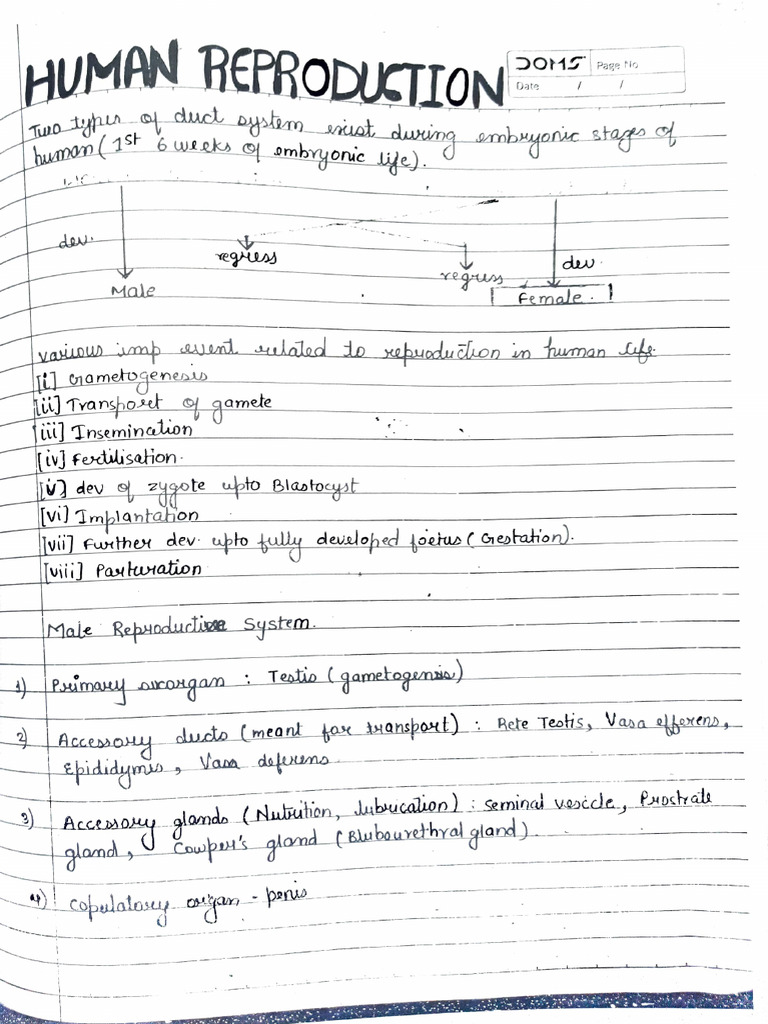 HUMAN REPRODUCTION
DOMS Page No
Date / /
Two types of duct system exist during embryonic stages of
human (1st 6 weeks of embryonic life).
dev.
regress
regress
dev.
Male
Female.
various imp event related to reproduction in human life.
[i] Gametogenesis
[ii] Transport of gamete
[iii] Insemination
[iv] Fertilisation.
[v] dev of zygote upto Blastocyst
[vi] Implantation
[vii] Further dev. upto fully developed foetus (Gestation).
[viii] Parturation
Male Reproductive System.
1) Primary sexorgan : Testis (gametogensis)
2) Accessory ducts (meant for transport) : Rete Testis, Vasa efferens,
Epididymis, Vasa deferens
3) Accessory glands (Nutrition, lubrication) : seminal vesicle, Prostrate
gland, Cowper's gland (Blubourethral gland).
4) copulatory organ - penis